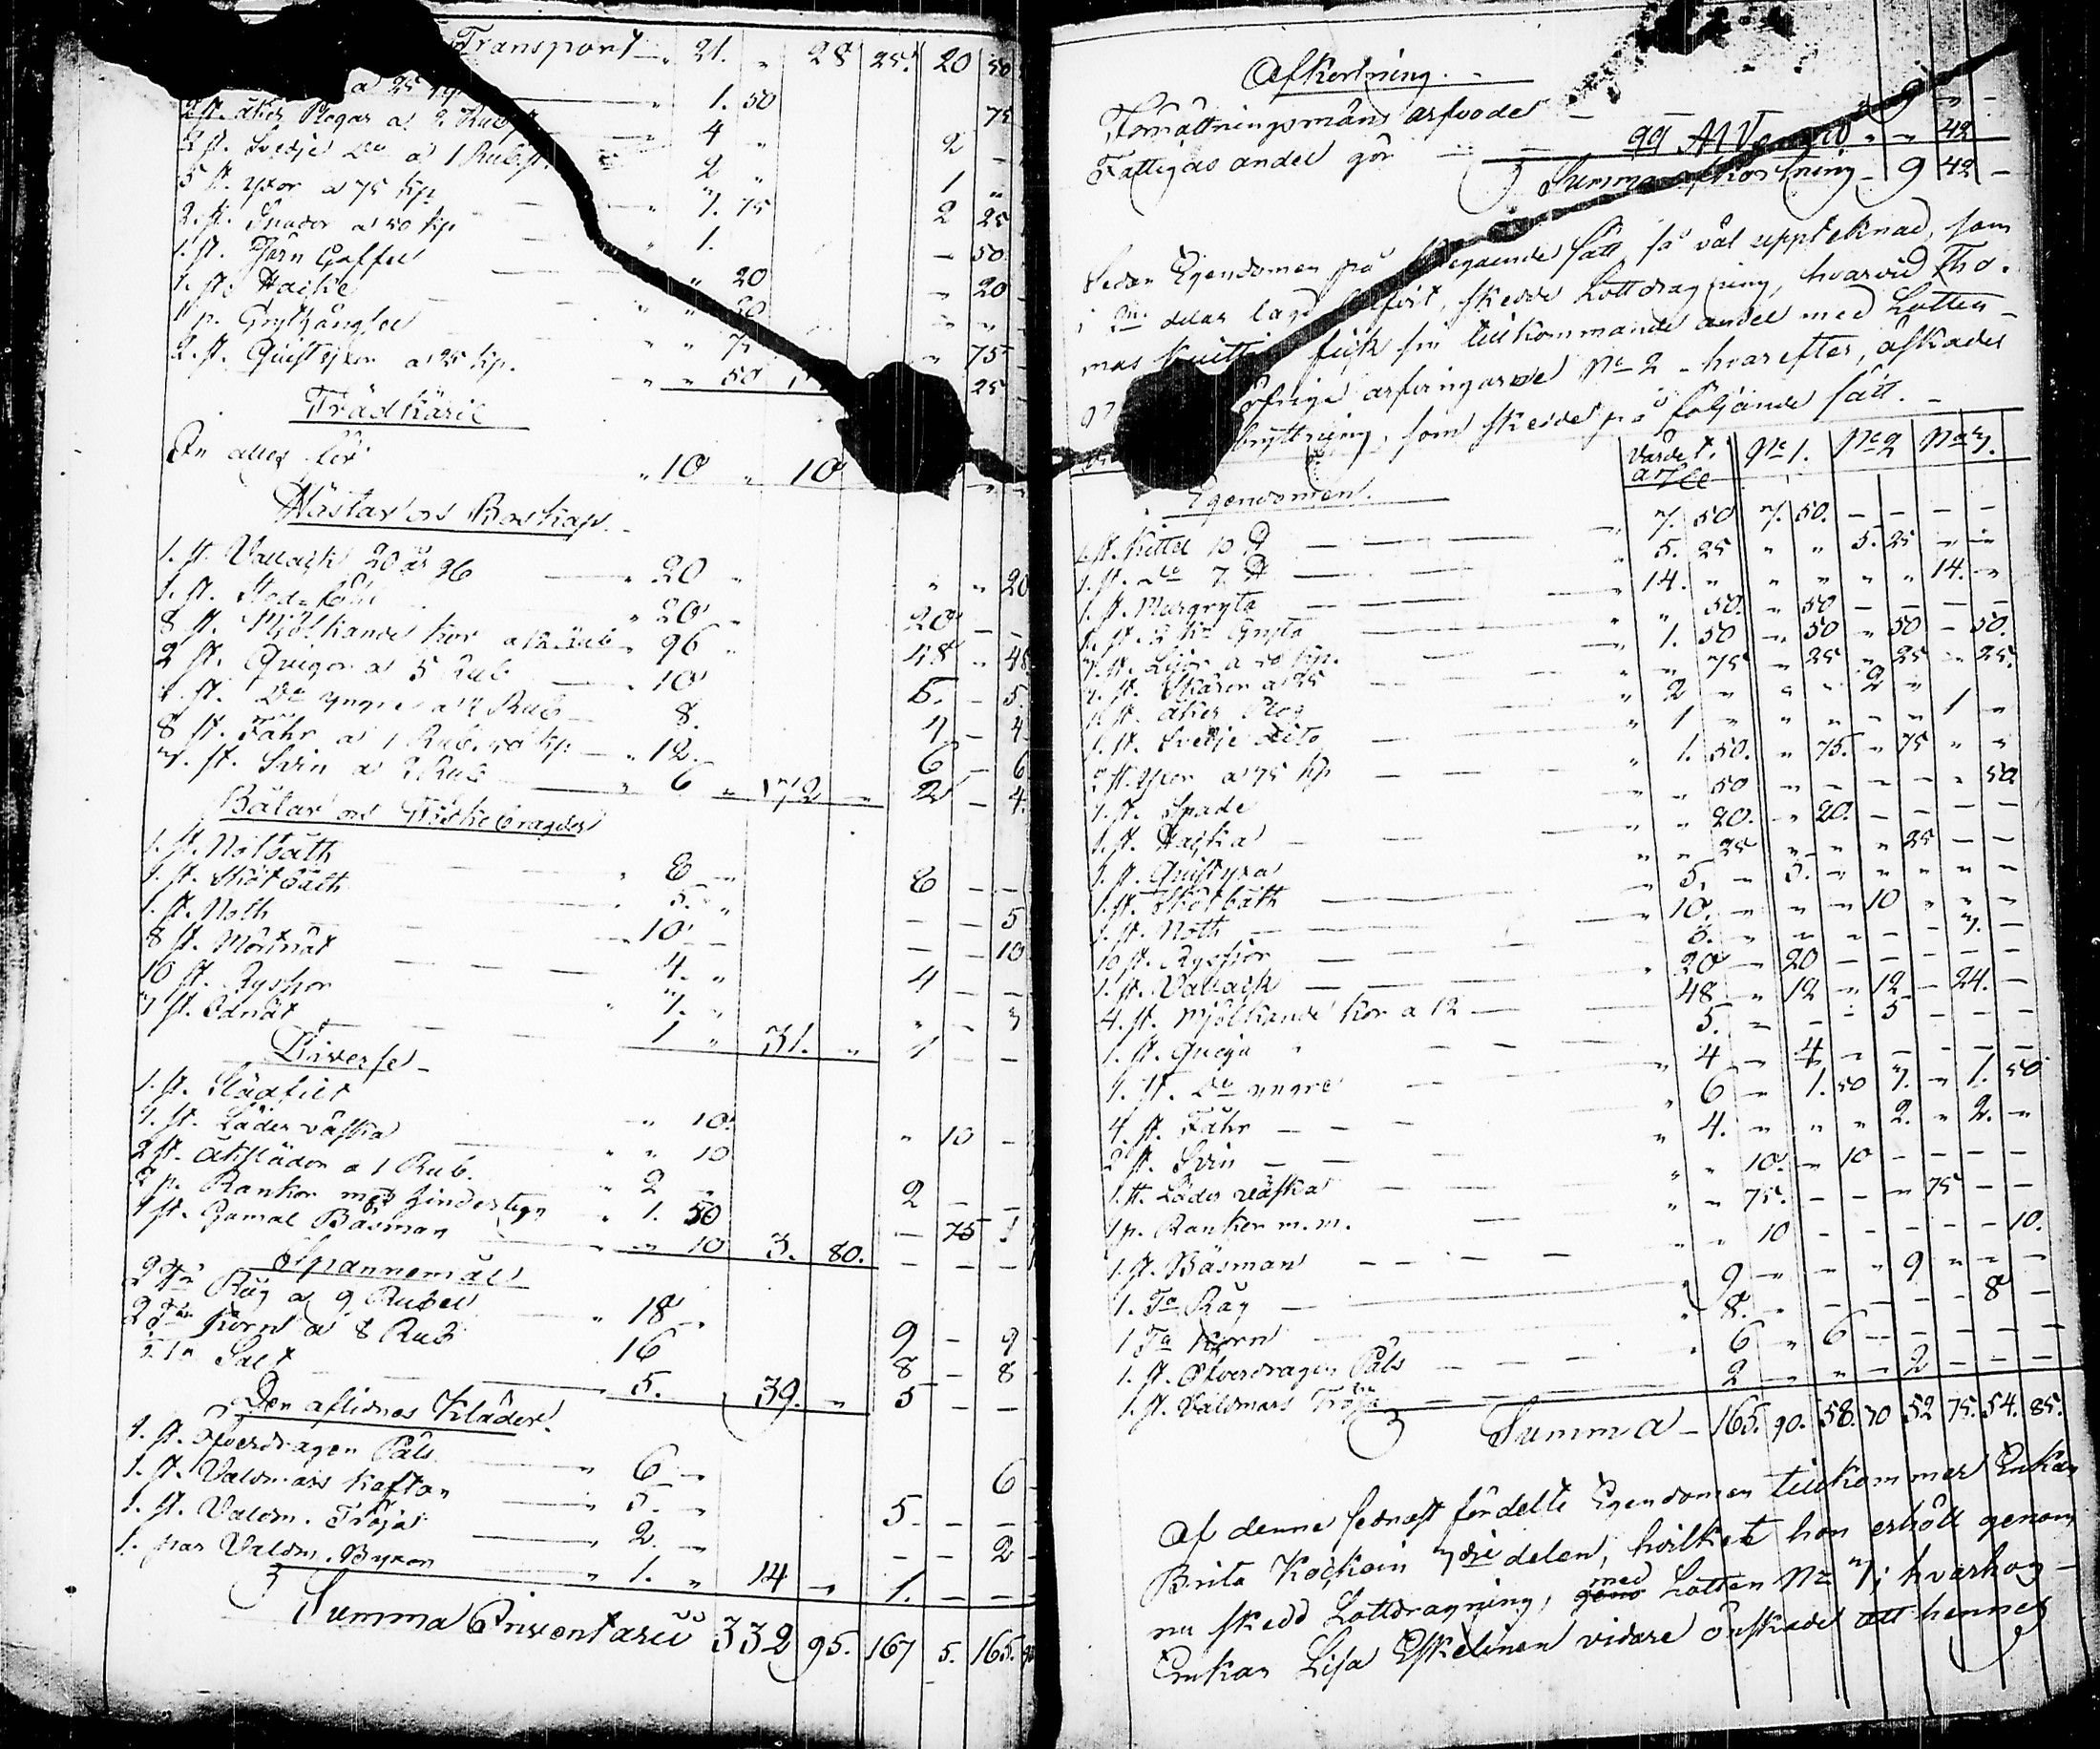 Transport " 21. " 28 25. 20 50
a 25
2 st. åker Plogar a 2 Rub " 1. 50 75
2 st. Svedje Do a 1 Rub. " 4 " 2 -
3 st. yxor a 75 kp 2 " 1 "
2. st. Spador a 50 kp " 7. 75 2 25
1. st. Järn Gaffel " 1. - 50
1. st. Hacka " " 20 " 20
1 p. Grythängsel
2. st. Quistyxor a 25 kp. " " 50 25
Trädkäril
En alles för " 10 " 10
Hästar och Boskap
1. st. Vallack 20 år 20 " " " 20
1. st. Stod-föhl " 20 " 20 - -
8 st. Mjölkande kor a 12 Rub 96 " 48 " 48
2 st. Quigor a 5 Rub " 10 5. - 5.
2 st. Do yngre a 4 Rub 8. 4 - 4
8 st. Fåhr a 1 Rub. 50 kp " 12. 6 - 6
3. st. Svin a 2 Rub " 6 " 172 " 2 - 4.
Båtar och Fiskebragder
1. st. Notbåth " 8 - 8 - -
1. st. Skötbåth " 5. " - - 5
1. st. Noth " 10 - - - 10
8 st. Mörtnät 4. " 4 - -
10 st. Ryssjor " 3. " " - 3
3 st. Idnät 1 " 31. " 1 - -
Diverse
1. st. Slädfilt " 10. " 10 -
1. st. Läder väska " " 10
2 st. åkslädor a 1 Rub. " 2 - 2 - -
2 p. Rankor med Zindertygn " 1. 50 - 75
1 st. Gamal Bäsman " " 10 3. 80. - - -
Spannemål
2 Tn Råg a 9 Rubel " 18 " 9 - 9
2 Tn Korn a 8 Rub 16 8 - 8
Salt 5. 39. " 5 - -
Den aflidnes Kläder
1. st. Öfverdragen Päls " 6 - 6
1. st. Valdmars kaftan " 5. " 5 - -
1. st. Valdm. Tröja " 2. " - - 2
1. par Valdm. Byxon " 1. " 14 " 1. - -
Summa Inventarii 332 95. 167 5. 165. 90
Afkortning.
Förrättningsmäns arfvode - 9 " -
Fattigas andel gör " " 42
Summa afkortning - 9 42 -
Sedan Egendomen på gående sätt så väl upptecknad, som
i delar lagd blifvit, skedde Lottdragning, hvarvid Tho-
mas fick sin tillkommande andel med Lotten
öfrige arfvingarne No 2 - hvarefter, äskades
bryttning, som skedde på följande sätt. -
Egendomen.
Värdet. No 1. No 2 No 3.
1. st. Kittel 10 ℔ " 7. 50 7. 50. - - - -
1. st. Do 7 ℔ " 5. 25 " " 5. 25 " "
1. st. Murgryta 14. " " " " " 14. "
1. st. Gryta " " 50. " 50 - - - -
3. st. Lijor a 50 kp. " 1. 50 " 50 " 50 - 50.
3. st. Skäror a 25 " " 75 " 25 " 25 " 25.
1. st. åker Plog " 2 " " " 2 "
1. st. Svedje Dito " 1 " " " " " 1 "
2 st. yxor a 75 kp " 1. 50. " 75. " 75 " "
1. st. Spade " " 50 - - - - " 50
1. st. Hacka " " 20. " 20. - - - -
1. st. Quistyxa " " 25 " " " 25 - -
1. st. Skötbåth " 5. " 5. " " " " "
1. st. Noth " 10. " " " 10 " " "
10 st. Ryssjor 3. " " " - - 3. -
1. st. Vallack " 20 " 20 - - - - -
4. st. Mjölkande kor a 12 48 " 12 " 12 - 24. -
1. st. Quiga 5. " - - 5 - - -
1. st. Do yngre " 4 " 4 " - - - -
4. st. Fåhr " 6 " 1. 50 3. " 1. 50
2 st. Svin " 4. " " " 2. " 2. "
1. st. Läder väska " " 10. " 10 - - - -
1 p. Rankor m.m. " " 75. - - " 75 - -
1. st. Bäsman " " 10 - - - - - 10.
1. Ta Råg 9 " - " 9 " " -
1 Ta Korn 8. " - - - - 8 -
1. st. Öfverdragen Päls 6 " 6 - - - - -
1. st. Valdmars Tröja 2 " " " 2 - - -
Summa - 165. 90. 58. 30 52 75. 54. 85.
Af denne sednast fördelte Egendomen tillkommer Enkan
Brita Kockoin 3dje delen, hvilket hon erhöll genom
nu skedd Lottdragning, med Lotten No 3; hvarhos
Enkan Lisa Eskelinen vidare önskade att hennes